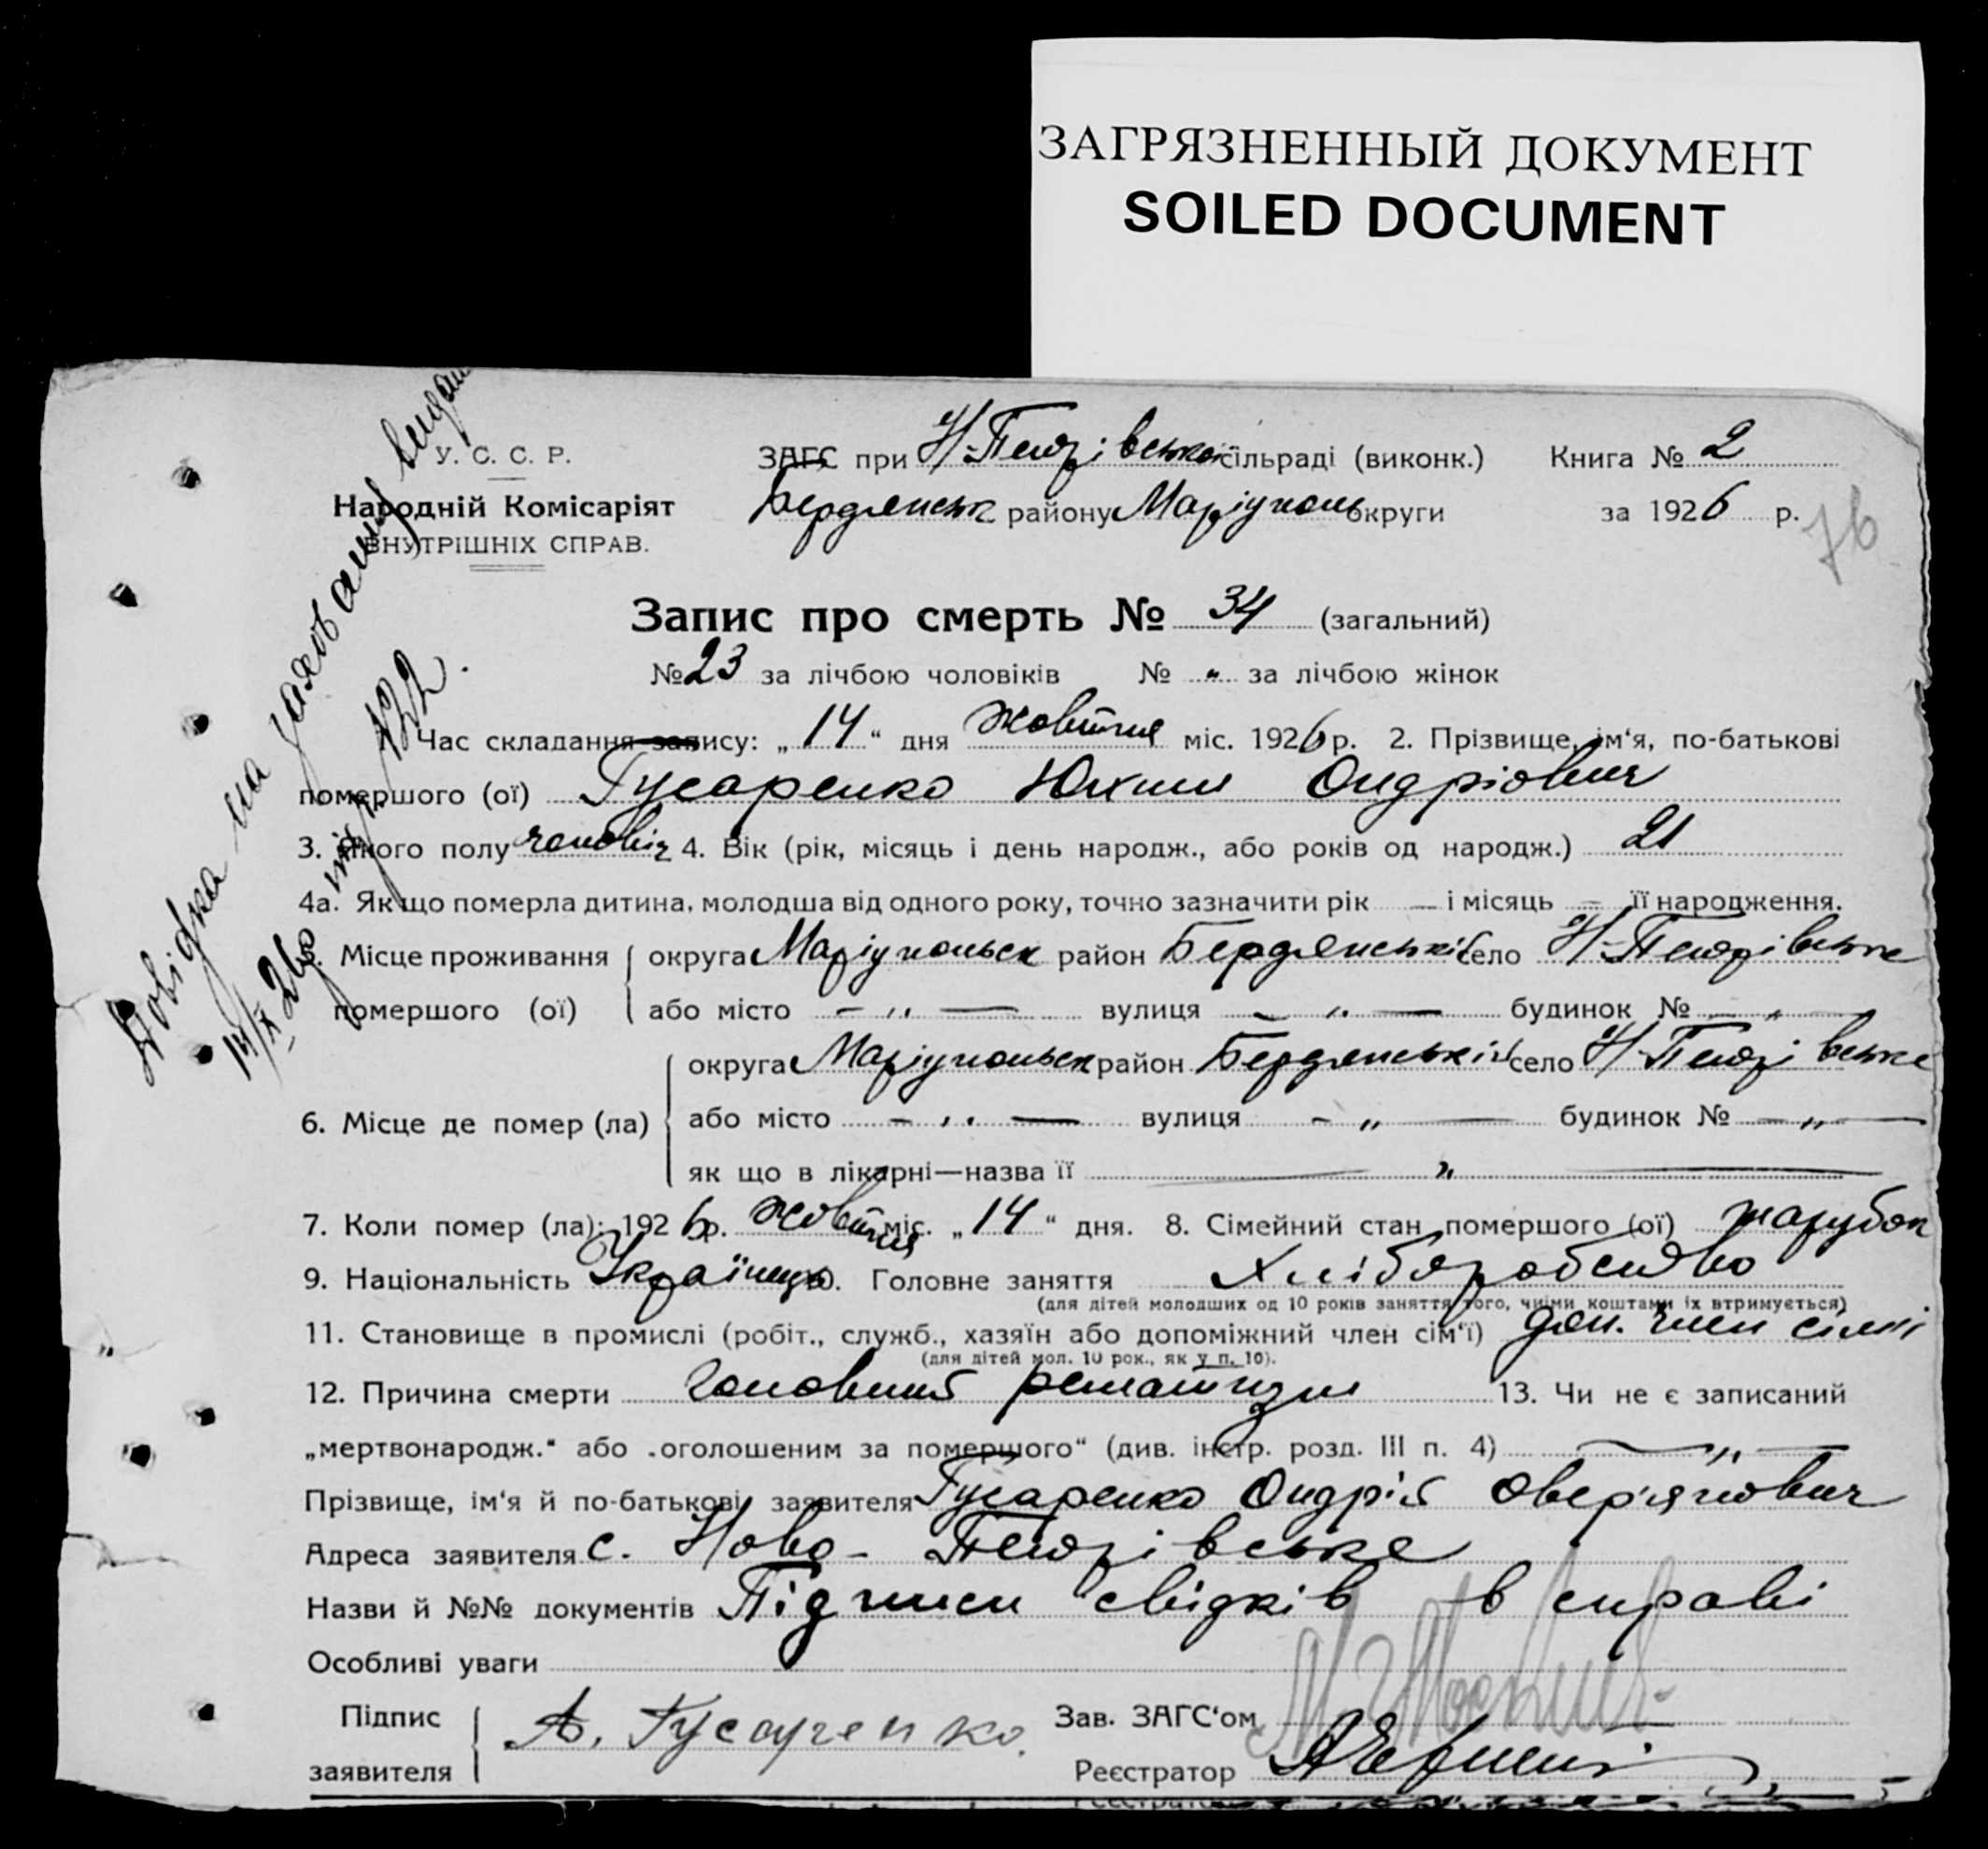 ЗАГРЯЗНЕННЫЙ ДОКУМЕНТ
SOILED DOCUMENT
У. С. С. Р.
Народній Комісаріят
ВНУТРІШНІХ СПРАВ.
ЗАГС при Н-Петрівської сільраді (виконк.) Книга № 2
Бердянськ району Маріуполь округи за 1926 р.
76
Запис про смерть № 34 (загальний)
№ 23 за лічбою чоловіків № „ за лічбою жінок
Час складання запису: „14“ дня Жовтня міс. 1926 р. 2. Прізвище, ім‘я, по-батькові
помершого (ої) Гусаренко Юхим Ондріович
3. Якого полу чоловіч 4. Вік (рік, місяць і день народж., або років од народж.) 21
4а. Як що померла дитина, молодша від одного року, точно зазначити рік — і місяць — її народження.
5. Місце проживання округа Маріупольск район Бердянський село Н-Петрівське
помершого (ої) або місто — „ — вулиця — „ — будинок № — „ —
округа Маріупольск район Бердянський село Н-Петрівське
6. Місце де помер (ла) або місто — „ — вулиця — „ — будинок № — „ —
як що в лікарні—назва її — „ —
7. Коли помер (ла): 1926 р. Жовтня міс. „14“ дня. 8. Сімейний стан помершого (ої) парубок
9. Національність Українець 10. Головне заняття Хліборобство
(для дітей молодших од 10 років заняття того, чиїми коштами їх втримується)
11. Становище в промислі (робіт., служб., хазяїн або допоміжний член сім‘ї) доп. член сімї
(для дітей мол. 10 рок., як у п. 10).
12. Причина смерти Головний ревматизм 13. Чи не є записаний
„мертвонародж.“ або „оголошеним за помершого“ (див. інстр. розд. III п. 4) — „ —
Прізвище, ім‘я й по-батькові заявителя Гусаренко Ондрій Овер'янович
Адреса заявителя с. Ново-Петрівське
Назви й №№ документів Підписи свідків в справі
Особливі уваги
Підпис заявителя А. Гусаренко.
Зав. ЗАГС‘ом
Реєстратор
Довідка на
14/X 26
132.